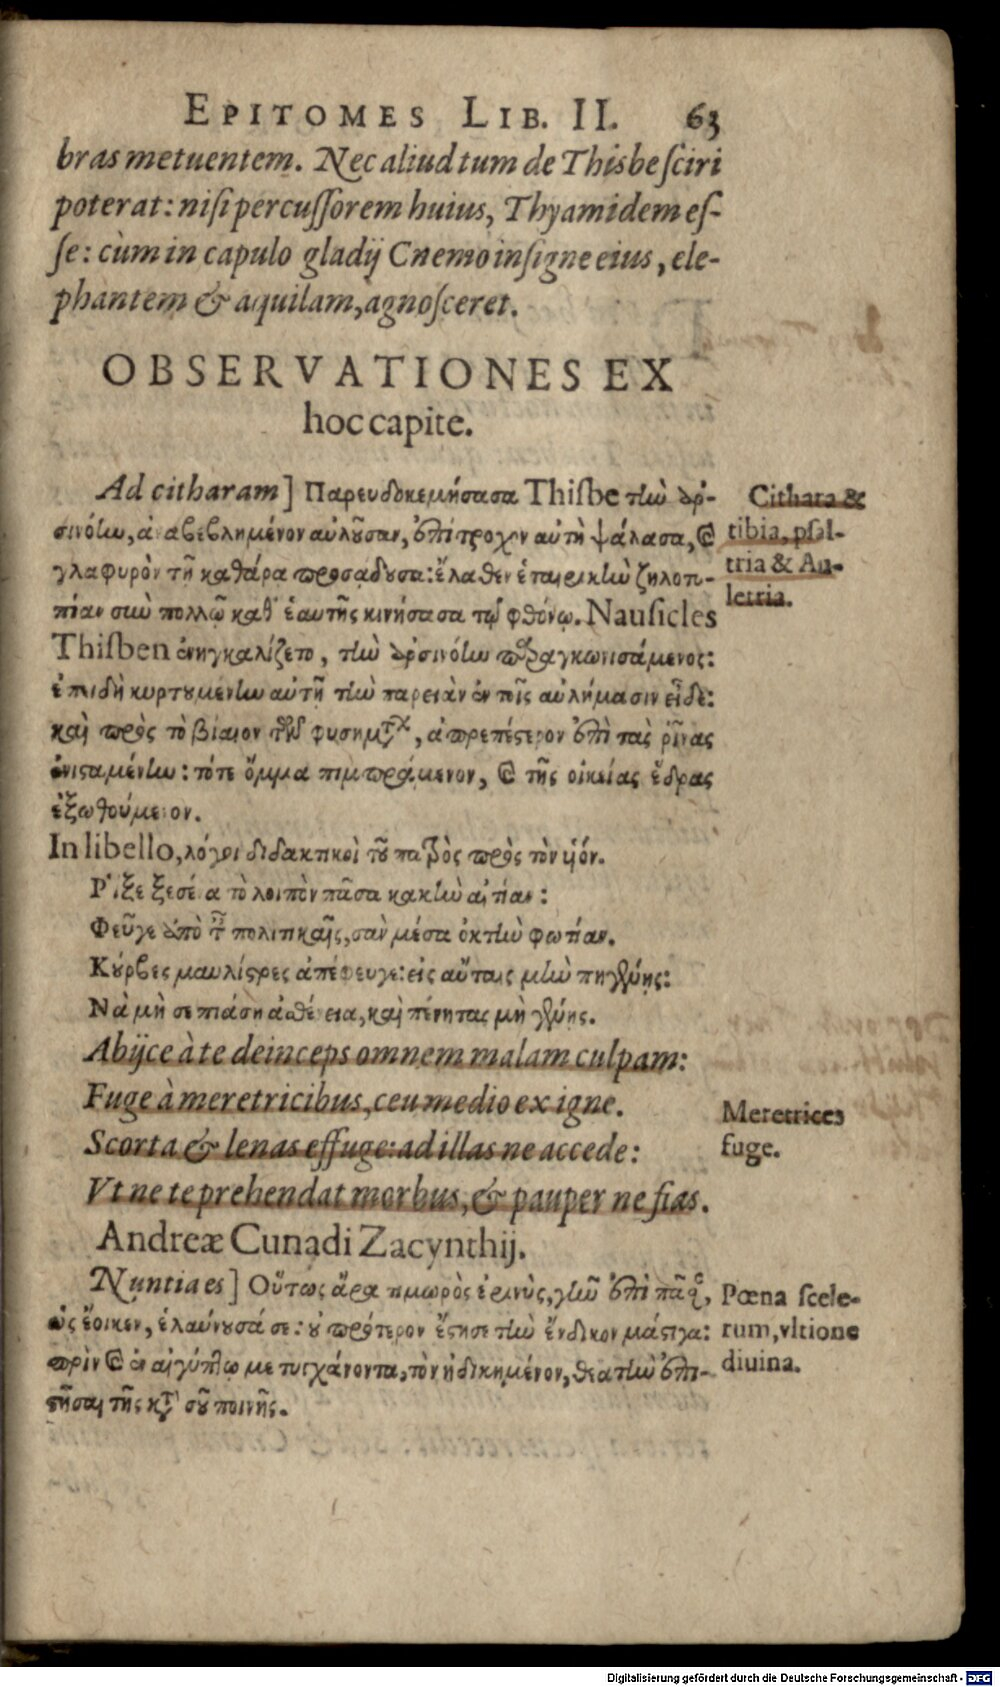 EPITOMES LIB. II. 63
bras metuentem. Nec aliud tum de Thisbe ſciri
poterat: niſi percuſſorem huius, Thyamidem eſ-
ſe: cùm in capulo gladij Cnemo inſigne eius, ele-
phantem & aquilam, agnoſceret.
OBSERVATIONES EX
hoc capite.
Ad citharam] Παρευδοκιμήσασα Thiſbe τὴν ἀρ-
σινόην, ἀναβεβλημένον αὐλοῦσαν, ἐπίτροχον αὐτὴ ψάλασα, καὶ
γλαφυρὸν τῇ καθάρα προσᾴδουσα: ἔλαθεν ἑταιρικὴν ζηλοτυ-
πίαν σὺν πολλῷ καθ' ἑαυτῆς κινήσασα τῷ φθόνῳ. Nauſicles
Thiſben ἐνηγκαλίζετο, τὴν ἀρσινόην παραγκωνισάμενος:
ἐπειδὴ κυρτουμένην αὐτῇ τὴν παρειὰν ἐν τοῖς αὐλήμασιν εἶδε:
καὶ πρὸς τὸ βίαιον τῶν φυσημάτων, ἀπρεπέστερον ἐπὶ τὰς ῥῖνας
ἐνισταμένην: τότε ὄμμα πιμπράμενον, καὶ τῆς οἰκείας ἕδρας
ἐξωθούμενον.
In libello, λόγοι διδακτικοὶ τοῦ πατρὸς πρὸς τὸν υἱόν.
Ῥίξε ξεσέ α τὸ λοιπὸν πᾶσα κακὴν αἰτίαν:
Φεῦγε ἀπὸ τ πολιτικαῖς, σαν μέσα ὀκ τὴν φωτίαν.
Κούρβες μαυλίστρες ἀπέφευγε: εἰς αὔταις μὴν πηγαίνῃς:
Νὰ μὴ σε πιάσῃ ἀσθένεια, καὶ πένητας μὴ γένῃς.
Abijce à te deinceps omnem malam culpam:
Fuge à meretricibus, ceu medio ex igne.
Scorta & lenas effuge: ad illas ne accede:
Vt ne te prehendat morbus, & pauper ne fias.
Andreæ Cunadi Zacynthij.
Nuntia es] Οὕτως ἄρα τιμωρὸς ἐρινὺς, γῆν ἐπὶ πᾶσαν,
ὡς ἔοικεν, ἐλαύνουσά σε: οὐ πρότερον ἔστησε τὴν ἔνδικον μάστιγα:
πρὶν καὶ ἐν αἰγύπτῳ με τυγχάνοντα, τὸν ἠδικημένον, θεατὴν ἐπι-
στῆσαι τῆς κατὰ σοῦ ποινῆς.
Cithara &
tibia, pſal-
tria & Au-
letria.
Meretrices
fuge.
Pœna ſcele-
rum, vltione
diuina.
Digitalisierung gefördert durch die Deutsche Forschungsgemeinschaft - DFG